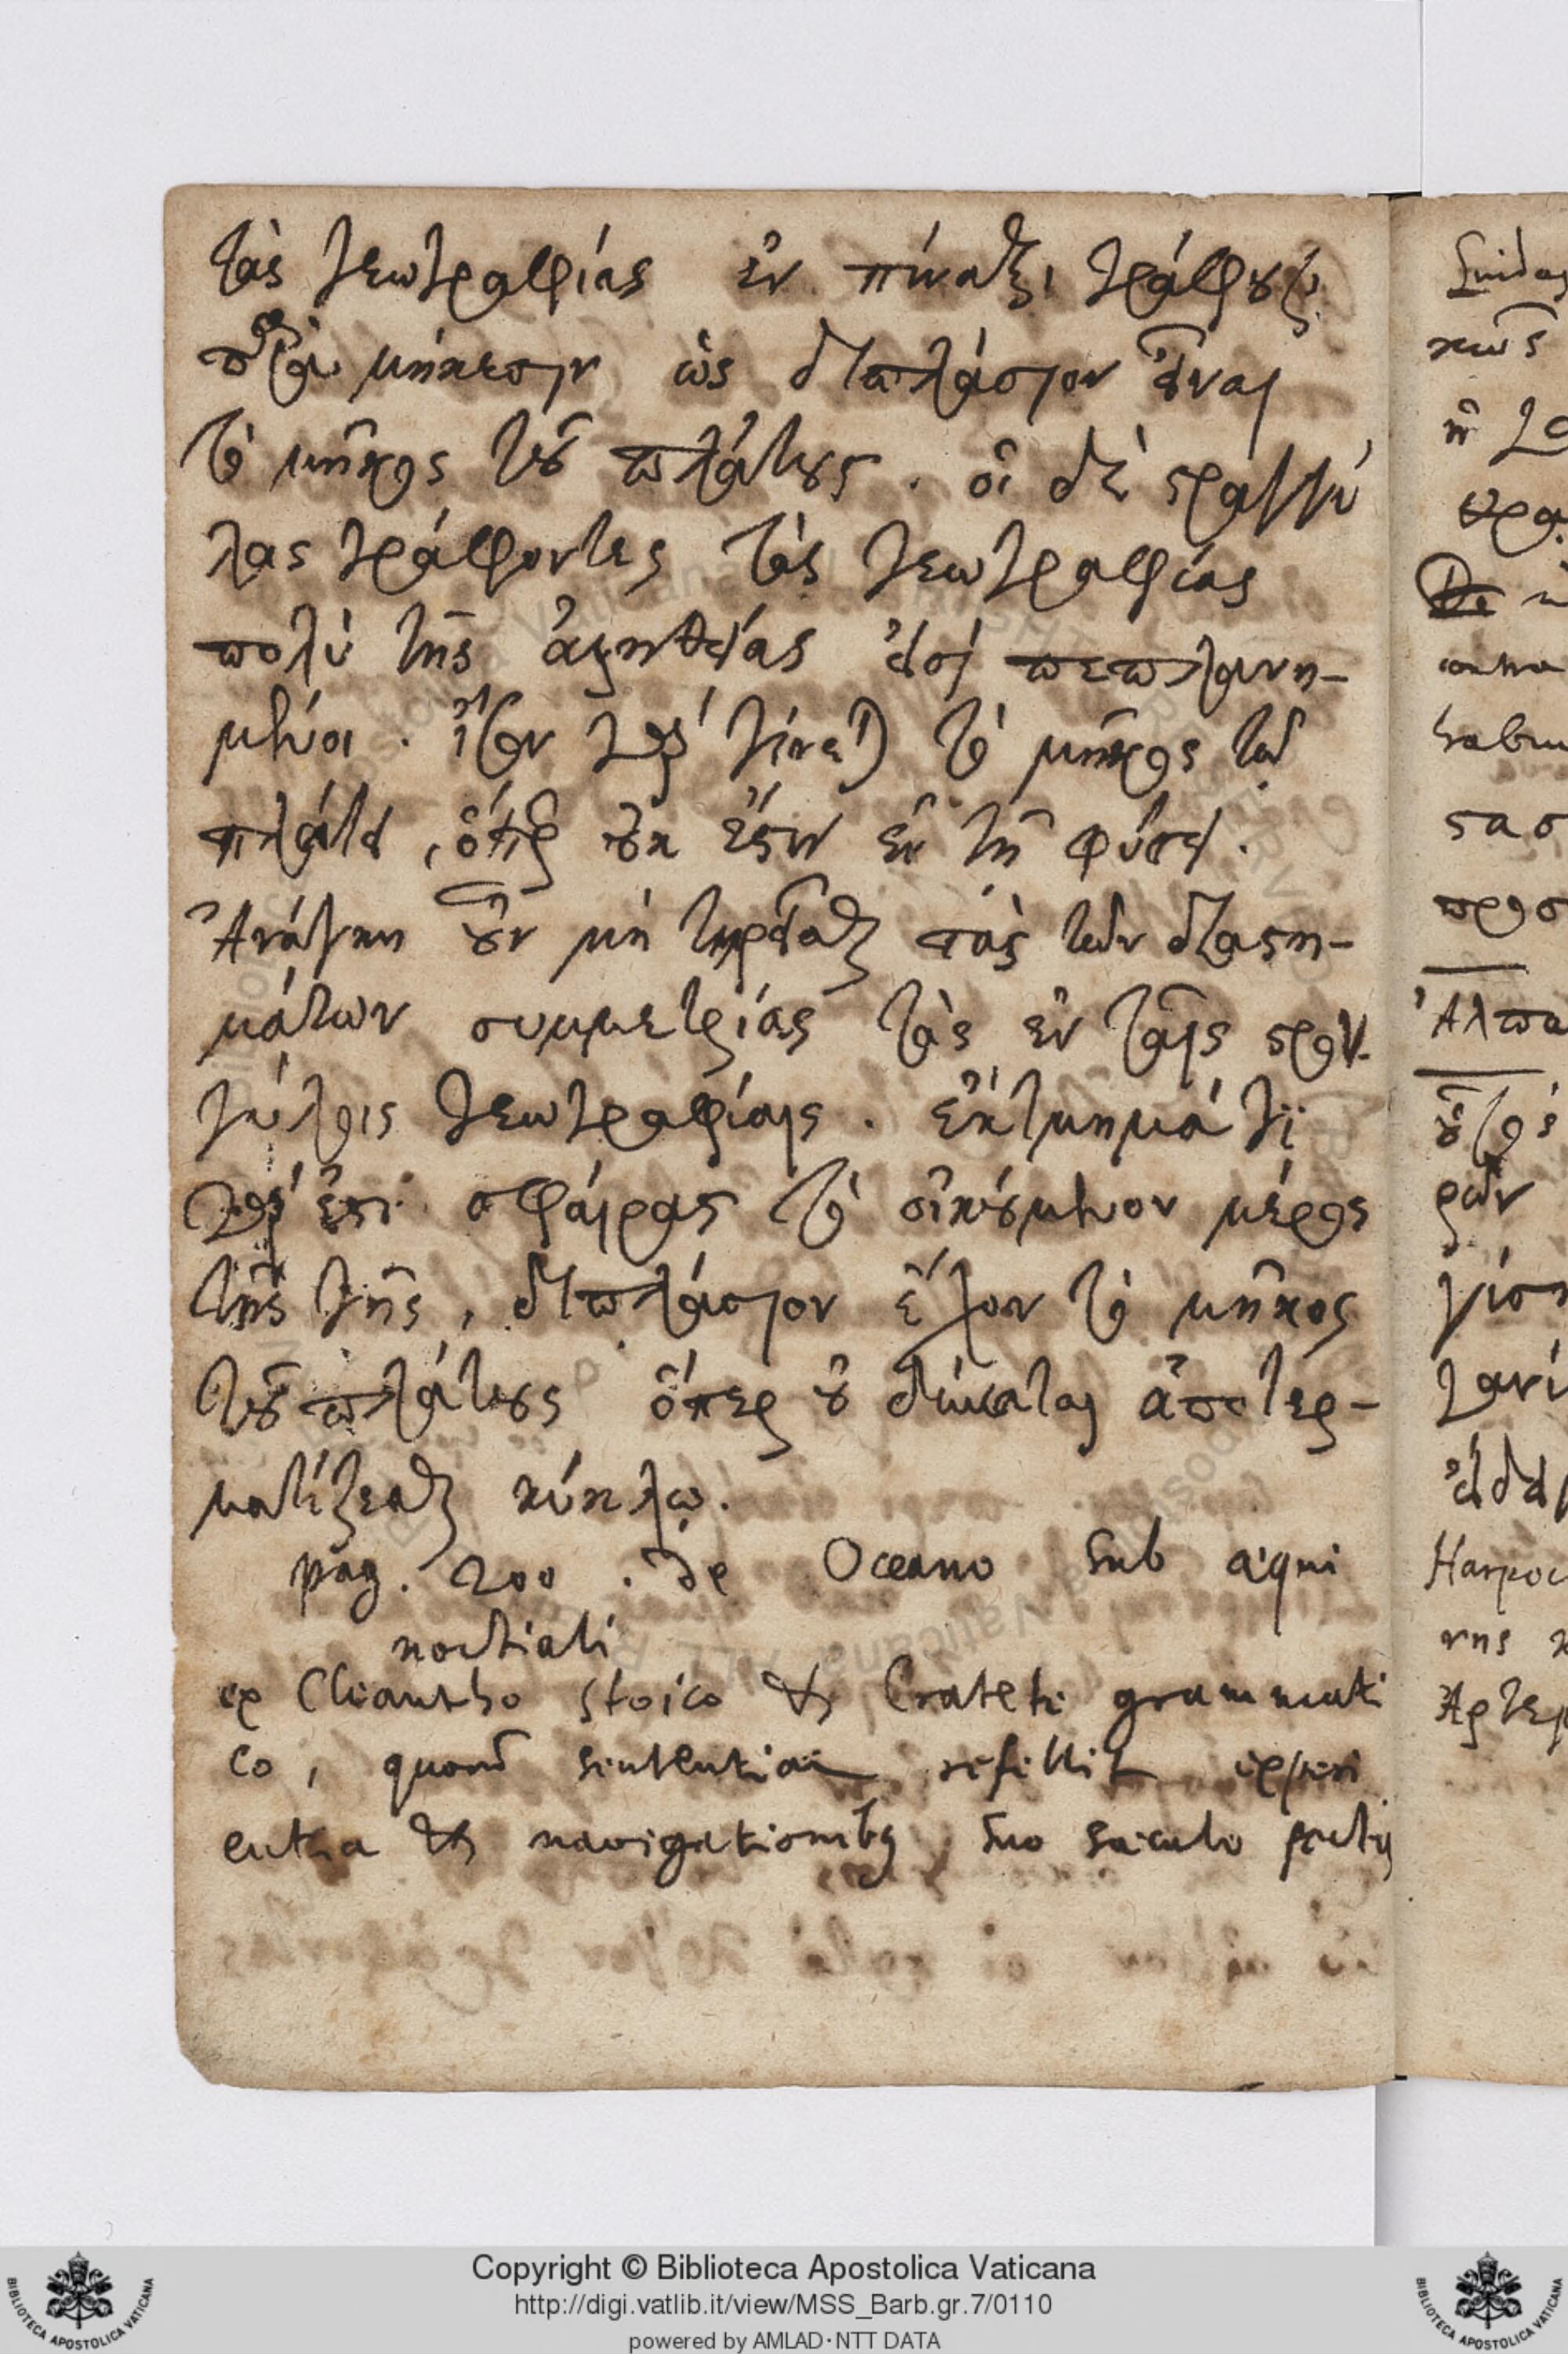 τὰς γεωγραφίας ἐν πίναξι γράφουσι
παραμήκεσιν ὡς διπλάσιον εἶναι
τὸ μῆκος τοῦ πλάτους. οἱ δὲ στρογγύ
λας γράφοντες τὰς γεωγραφίας
πολὺ τῆς ἀληθείας εἰσὶ πεπλανη-
μένοι. ἴσον γὰρ γίνεται τὸ μῆκος τῷ
πλάτει, ὅπερ οὐκ ἔστιν ἐν τῇ φύσει.
Ἀνάγκη οὖν μὴ τηρεῖσθαι τὰς τῶν διαστη-
μάτων συμμετρίας τὰς ἐν ταῖς στρογ-
γύλαις γεωγραφίαις. ἔκτμημά τι
γάρ ἐστι σφαίρας τὸ οἰκούμενον μέρος
τῆς γῆς, διπλάσιον ἔχον τὸ μῆκος
τοῦ πλάτους ὅπερ οὐ δύναται ἀποτερ-
ματίζεσθαι κύκλῳ.
pag. 200. de Oceano sub aequi
noctiali
ex Cleantho stoico & Crateti grammati
co, quorum sententiam refellit experi
entia & navigationibus suo saeculo
Suidas
κως
Ἀλπα
Harpoc
Ἀρτεμ
Copyright © Biblioteca Apostolica Vaticana
http://digi.vatlib.it/view/MSS_Barb.gr.7/0110
powered by AMLAD·NTT DATA
BIBLIOTECA APOSTOLICA VATICANA
BIBLIOTECA APOSTOLICA VATICANA